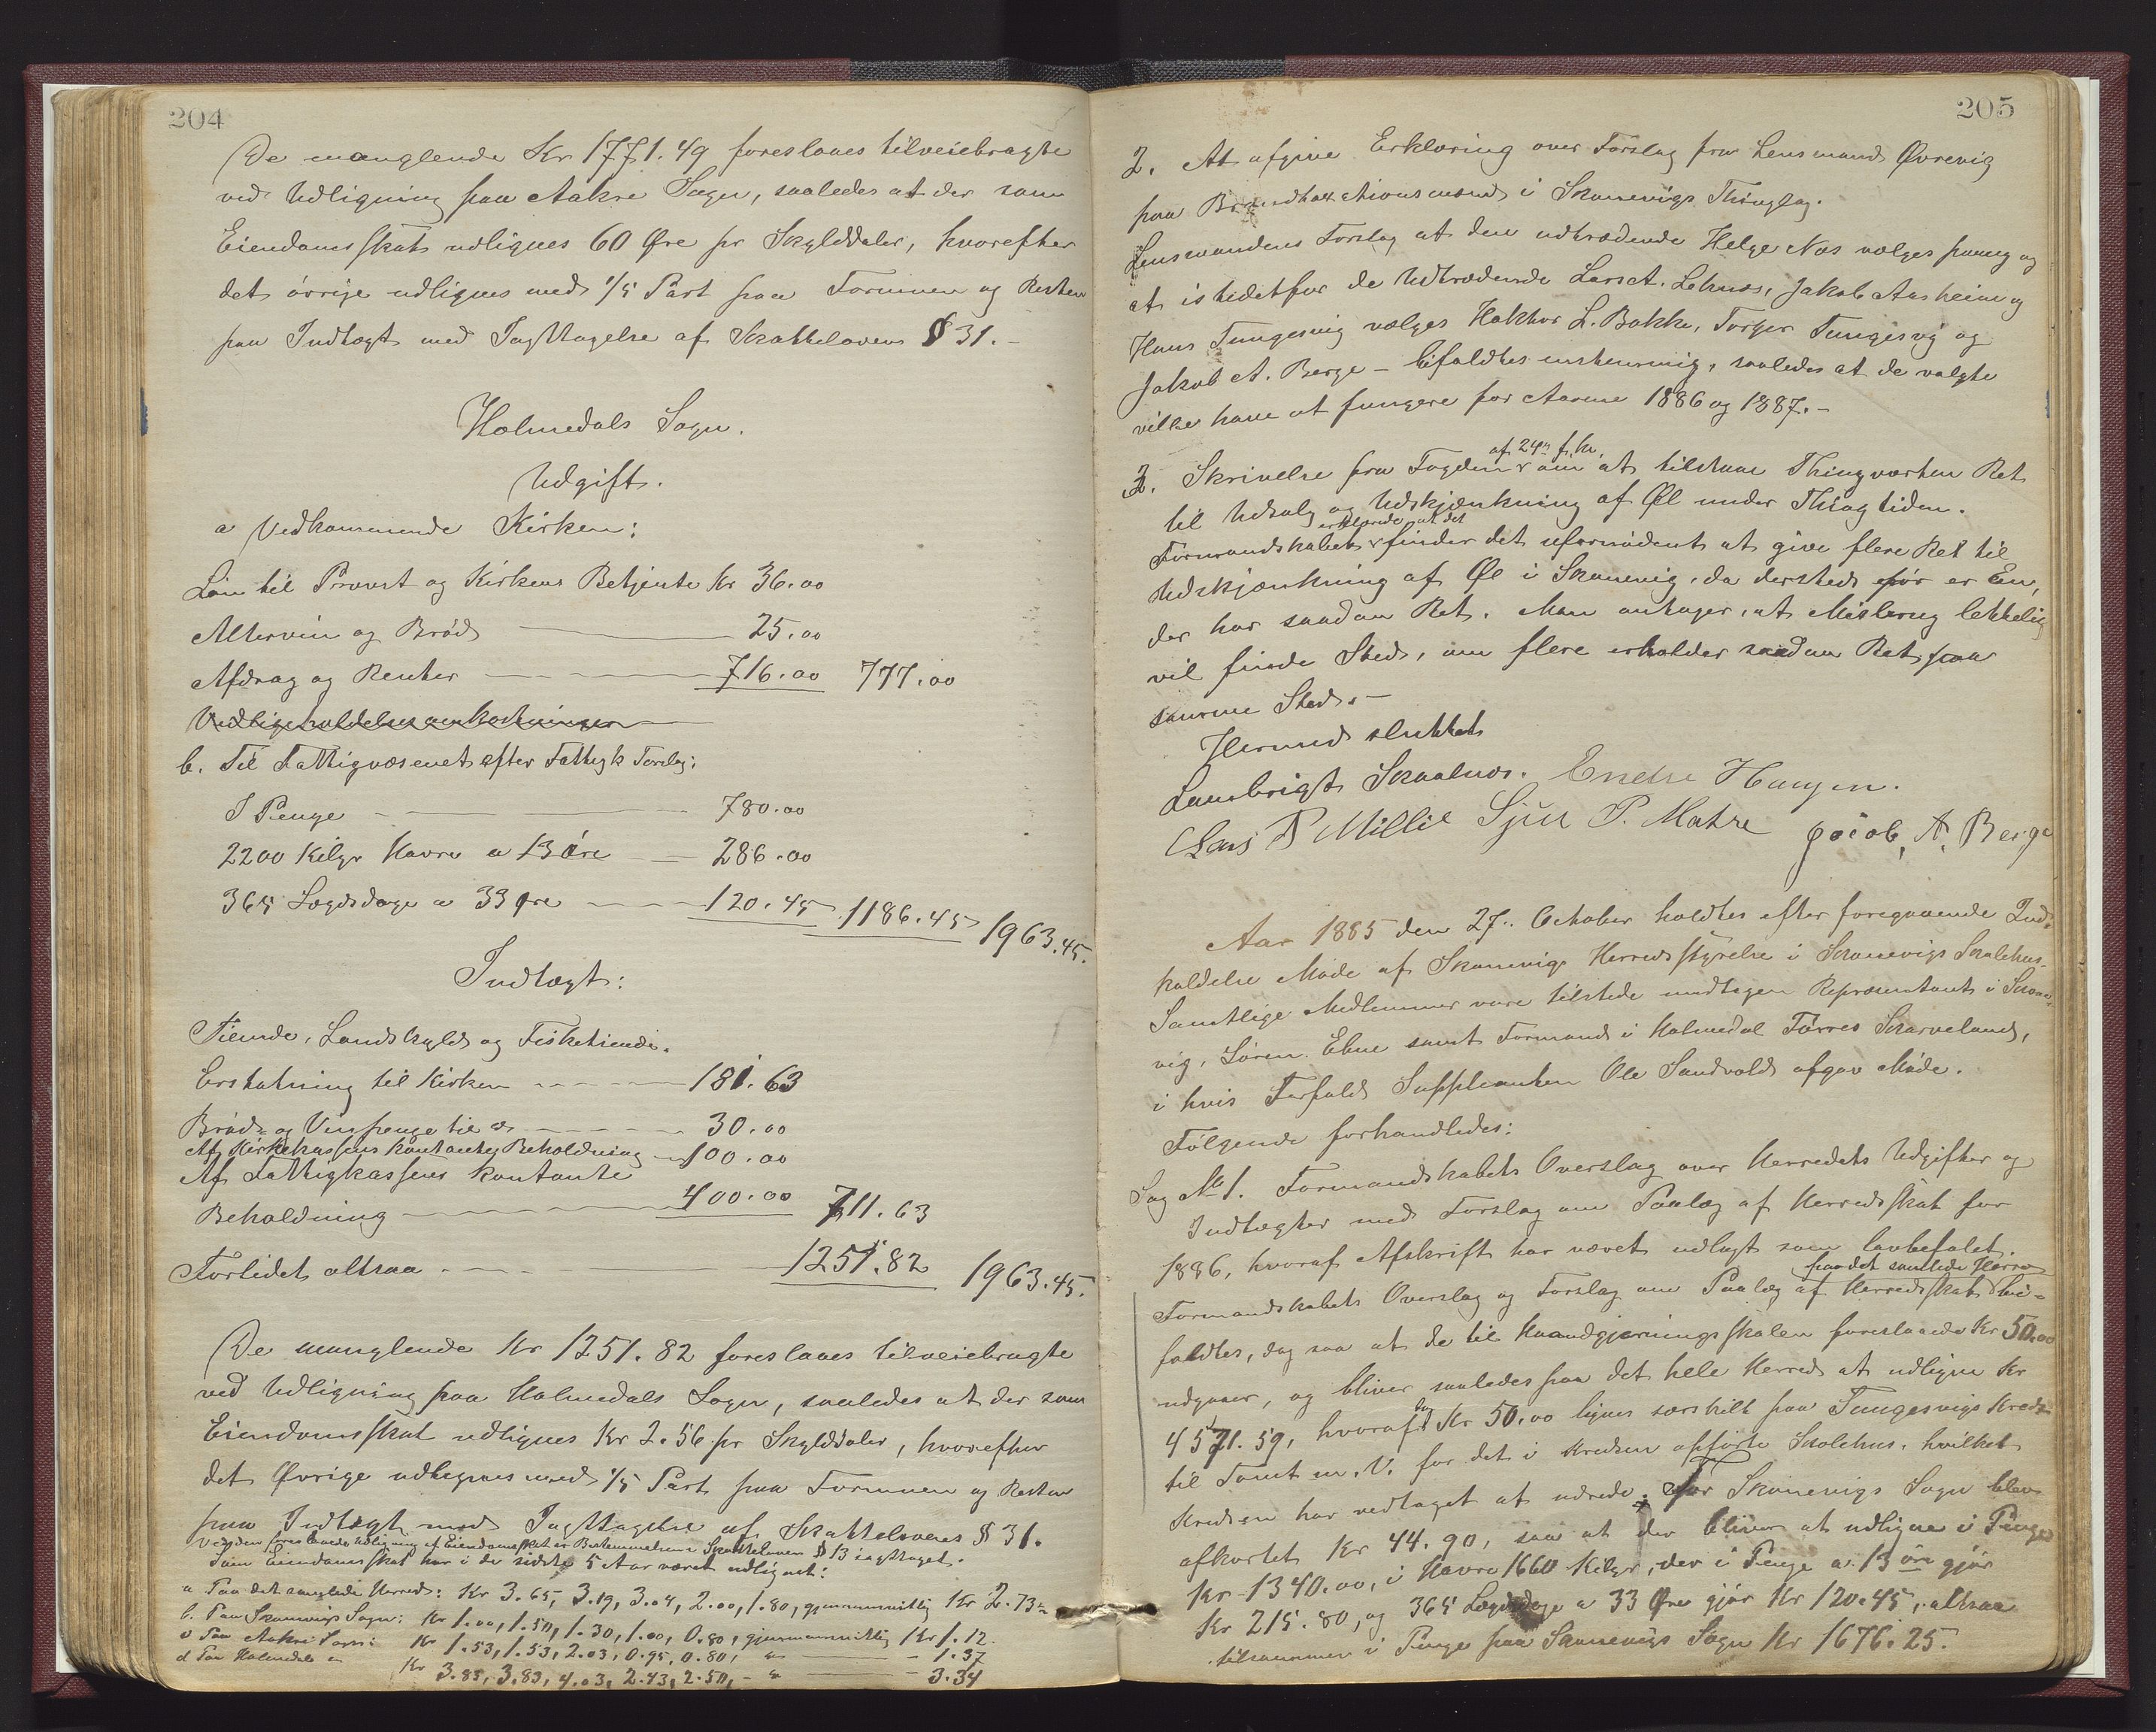 204
De manglende Kr 1771.49 foreslaaes tilveiebragte
ved Udligning paa Aakre Sogn, saaledes at der som
Eiendomsskat udlignes 60 Øre pr Skylddaler, hvorefter
det øvrige udlignes med 1/5 Part paa Formuen og Resten
paa Indtægt med Iagttagelse af Skattelovens § 31.-
Holmedals Sogn.
Udgift.
a Vedkommende Kirken:
Løn til Provst og Kirkens Betjente Kr 36.00
Altervin og Brød 25.00
Afdrag og Renter 716.00 777.00
Vedligeholdelsesomkostninger
b. Til Fattigvæsenet efter Fattigk Forslag:
I Penge 780.00
2200 Kilgr Havre a 13 øre 286.00
365 Lægdsdage a 33 Øre 120.45 1186.45 1963.45.
Indtægt:
Tiende, Landskyld og Fisketiende.
Erstatning til Kirken 181.63
Brød- og Vinpenge til do 30.00
Af Kirkekassens kontante Beholdning 100.00
Af Fattigkassens kontante
Beholdning 400.00 711.63
Forlidet altsaa 1251.82 1963.45.
De manglende Kr 1251.82 foreslaaes tilveiebragte
ved Udligning paa Holmedals Sogn, saaledes at der som
Eiendomsskat udlignes Kr 2.56 pr Skylddaler, hvorefter
det Øvrige udlignes med 1/5 Part paa Formuen og Resten
paa Indtægt med Iagttagelse af Skattelovens § 31.
Ved den foreslaaede Udligning af Eiendomsskat er Bestemmelsen i Skatteloven § 13 iagttaget.
Som Eiendomsskat har i de sidste 5 Aar været udlignet:
a Paa det samlede Herred: Kr 3.65, 3.19, 3.04, 2.00, 1.80, gjennemsnitlig Kr 2.73
b. Paa Skonevigs Sogn: Kr 1.00, 1.50, 1.30, 1.00, 0.80, gjennemsnitlig Kr 1.12.
c Paa Aakre Sogn: Kr 1.53, 1.53, 2.03, 0.95, 0.80, " - 1.37
d Paa Holmedals " Kr 3.85, 3.83, 4.03, 2.43, 2.50, - " - 3.34
205
2. At afgive Erklæring over Forslag fra Lensmand Øvrevig
paa Brandtaxationsmænd i Skonevigs Thinglag.
Lensmandens Forslag at den udtrædende Helge Næs vælges paany og
at istedetfor de Udtrædende Lars A. Leknes, Jakob Aasheim og
Hans Tungesvig vælges Haktor L. Bakke, Torger Tungesvig og
Jakob A. Berge - bifaldtes enstemmig, saaledes at de valgte
ville have at fungere for Aarene 1886 og 1887.-
af 24de f. M.
3. Skrivelse fra Fogden om at tilstaae Thingvarten Ret
til Udsalg og Udskjænkning af Øl under Thingtiden.
erklærede at det
Formandskabet finder det ufornødent at give flere Ret til
Udskjænkning af Øl i Skonevig, da dersteds før er Een,
der har saadan Ret. Man antager, at Misbrug lettelig
vil finde Sted, om flere erholder saadan Ret paa
samme Sted.-
Hermed sluttet
Lambrigt Skaalnes. Endre Haugen.
Lars P Millie Sjur P. Matre Jacob, A, Berge
Aar 1885 den 27. October holdtes efter foregaaende Ind-
kaldelse Møde af Skonevigs Herredsstyrelse i Skonevigs Skolehus.
Samtlige Medlemmer vare tilstede undtagen Repræsentant i Skone-
vig, Søren Ebne samt Formand i Holmedal Tørres Skarveland,
i hvis Forfald Suppleanten Ole Sandvold afgav Møde.
Følgende forhandledes:
Sag No 1. Formandskabets Overslag over Herredets Udgifter og
Indtægter med Forslag om Paalæg af Herredsskat for
1886, hvoraf Afskrift har været udlagt som lovbefalet.
paa det samlede Herred
Formandskabets Overslag og Forslag om Paalæg af Herredsskat bi-
faldtes, dog saa at de til Haandgjerningsskolen foreslaaede Kr 50.00
udgaaer, og bliver saaledes paa det hele Herred at udligne Kr
4571.59, hvoraf dog Kr 50.00 lignes særskilt paa Tungesvigs Kreds
til Tomt m. V. for det i Kredsen opførte Skolehus, hvilket
Kredsen har vedtaget at udrede. For Skonevigs Sogn blev
afkortet Kr 44.90, saa at der bliver at udligne i Penge
Kr 1340.00, i Havre 1660 Kilgr, der i Penge a 13 øre gjør
Kr 215.80, og 365 Lægdsdage a 33 Øre gjør Kr 120.45, altsaa
tilsammen i Penge paa Skonevigs Sogn Kr 1676.25.